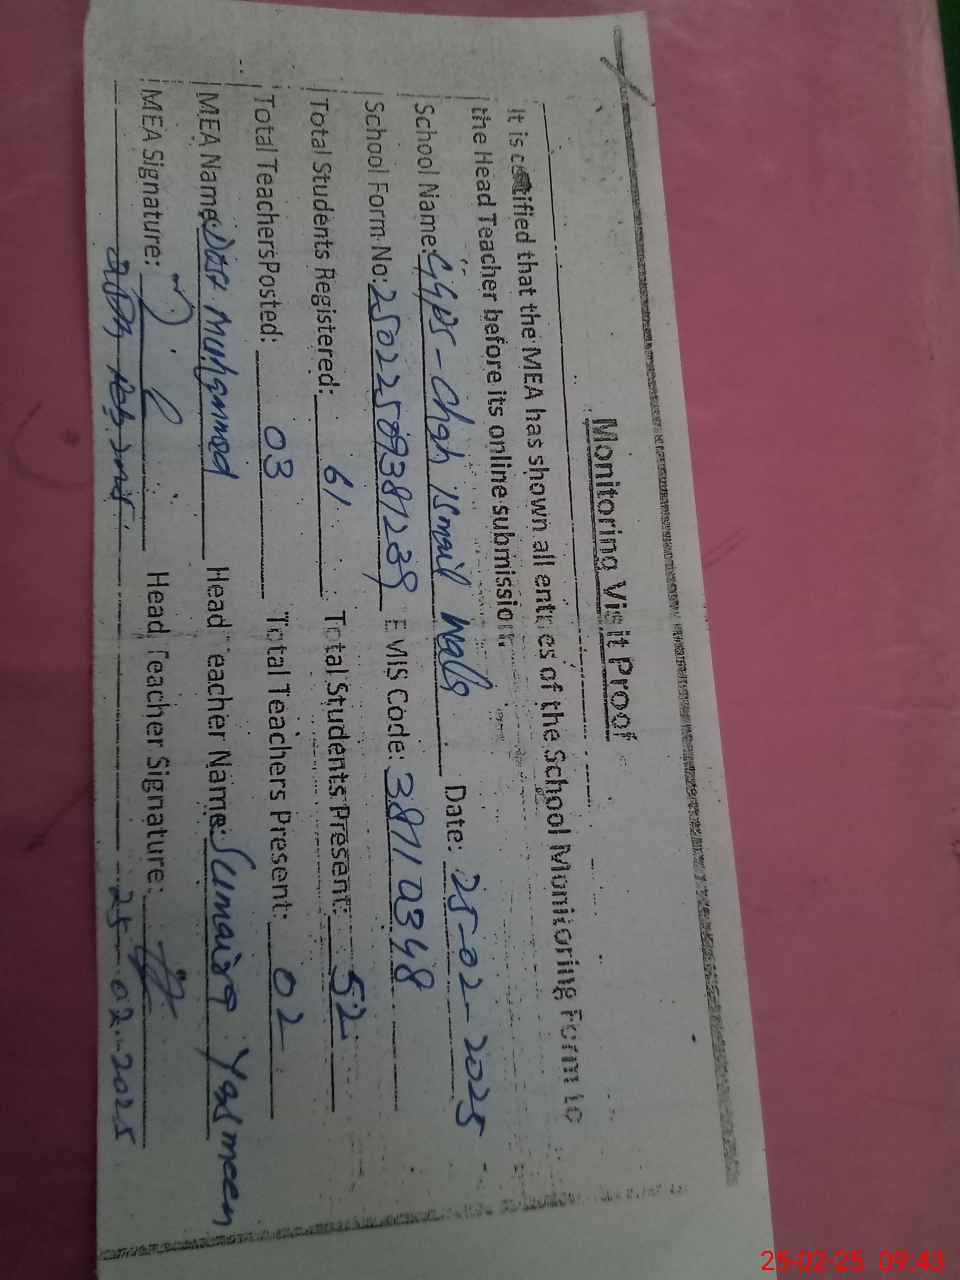 Monitoring Visit Proof
It is certified that the MEA has shown all entries of the School Monitoring Form to
the Head Teacher before its online submission.
School Name: GGPS - Chah Ismail Wala Date: 25-02-2025
School Form No: EMIS Code: 38710348
Total Students Registered: 61 Total Students Present: 52
Total Teachers Posted: 03 Total Teachers Present: 02
MEA Name: Dost Muhammad Head Teacher Name: Sumaira Yasmeen
MEA Signature: Head Teacher Signature:
25th Feb, 2025 25-02-2025
25-02-25 09:43